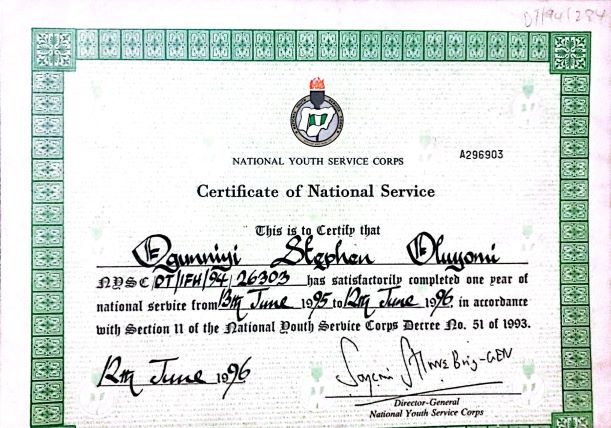 DT/94/284
NATIONAL YOUTH SERVICE CORPS
A296903
Certificate of National Service
This is to Certify that
Ogunniyi Stephen Oluyomi
NYSC/DT/IFH/94/26303 has satisfactorily completed one year of
national service from 13th June 1995 to 12th June 1996 in accordance
with Section 11 of the National Youth Service Corps Decree No. 51 of 1993.
12th June 1996
Brig-GEN
Director-General
National Youth Service Corps